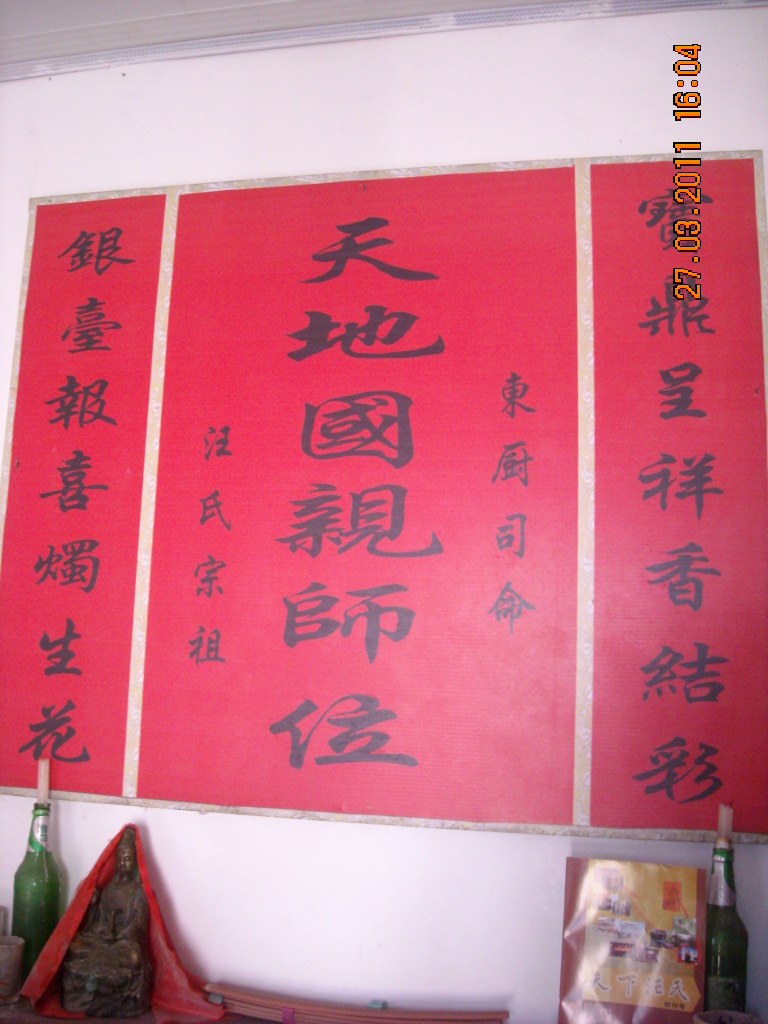 寶鼎呈祥香結彩
東厨司命
天地國親師位
汪氏宗祖
銀臺報喜燭生花
天下汪氏
27.03.2011 16:04